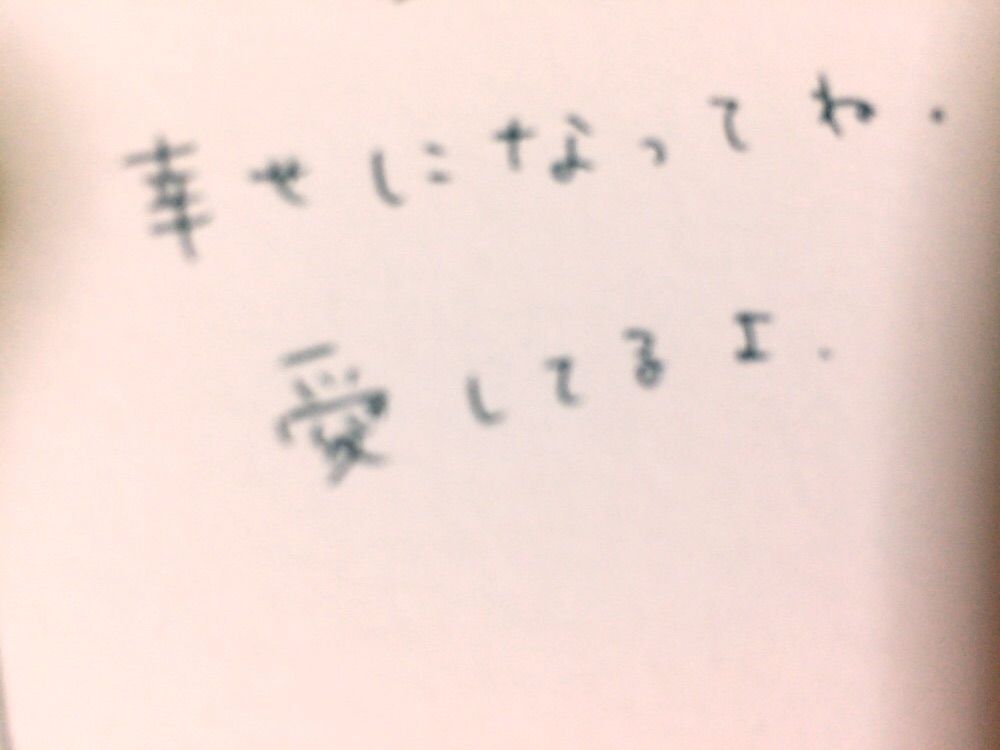 幸せになってね.
愛してるよ.